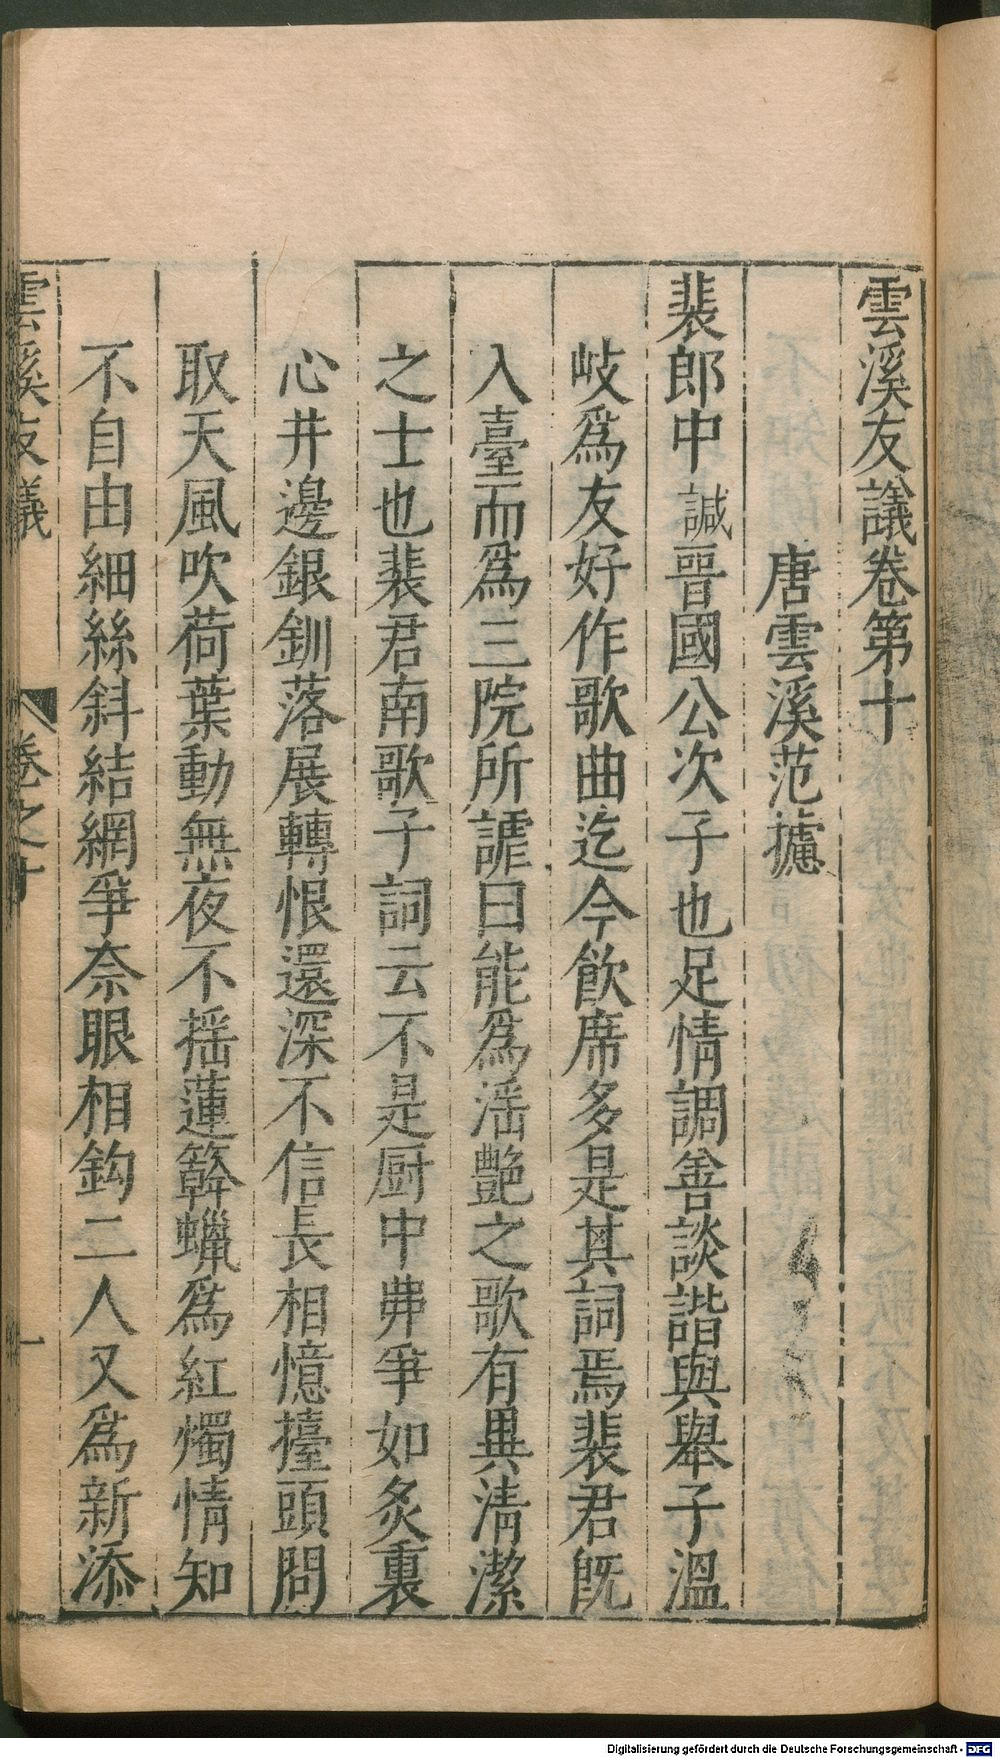 雲溪友議卷第十
唐雲溪范攄
裴郎中諴晉國公次子也足情調善談諧與舉子溫
岐爲友好作歌曲迄今飲席多是其詞焉裴君旣
入臺而爲三院所謔曰能爲淫艷之歌有異淸潔
之士也裴君南歌子詞云不是厨中丳爭如炙裏
心井邊銀釧落展轉恨還深不信長相憶擡頭問
取天風吹荷葉動無夜不揺蓮簳蠟爲紅燭情知
不自由細絲斜結網爭奈眼相鈎二人又爲新添
雲溪友議 卷之十 一
Digitalisierung gefördert durch die Deutsche Forschungsgemeinschaft - DFG